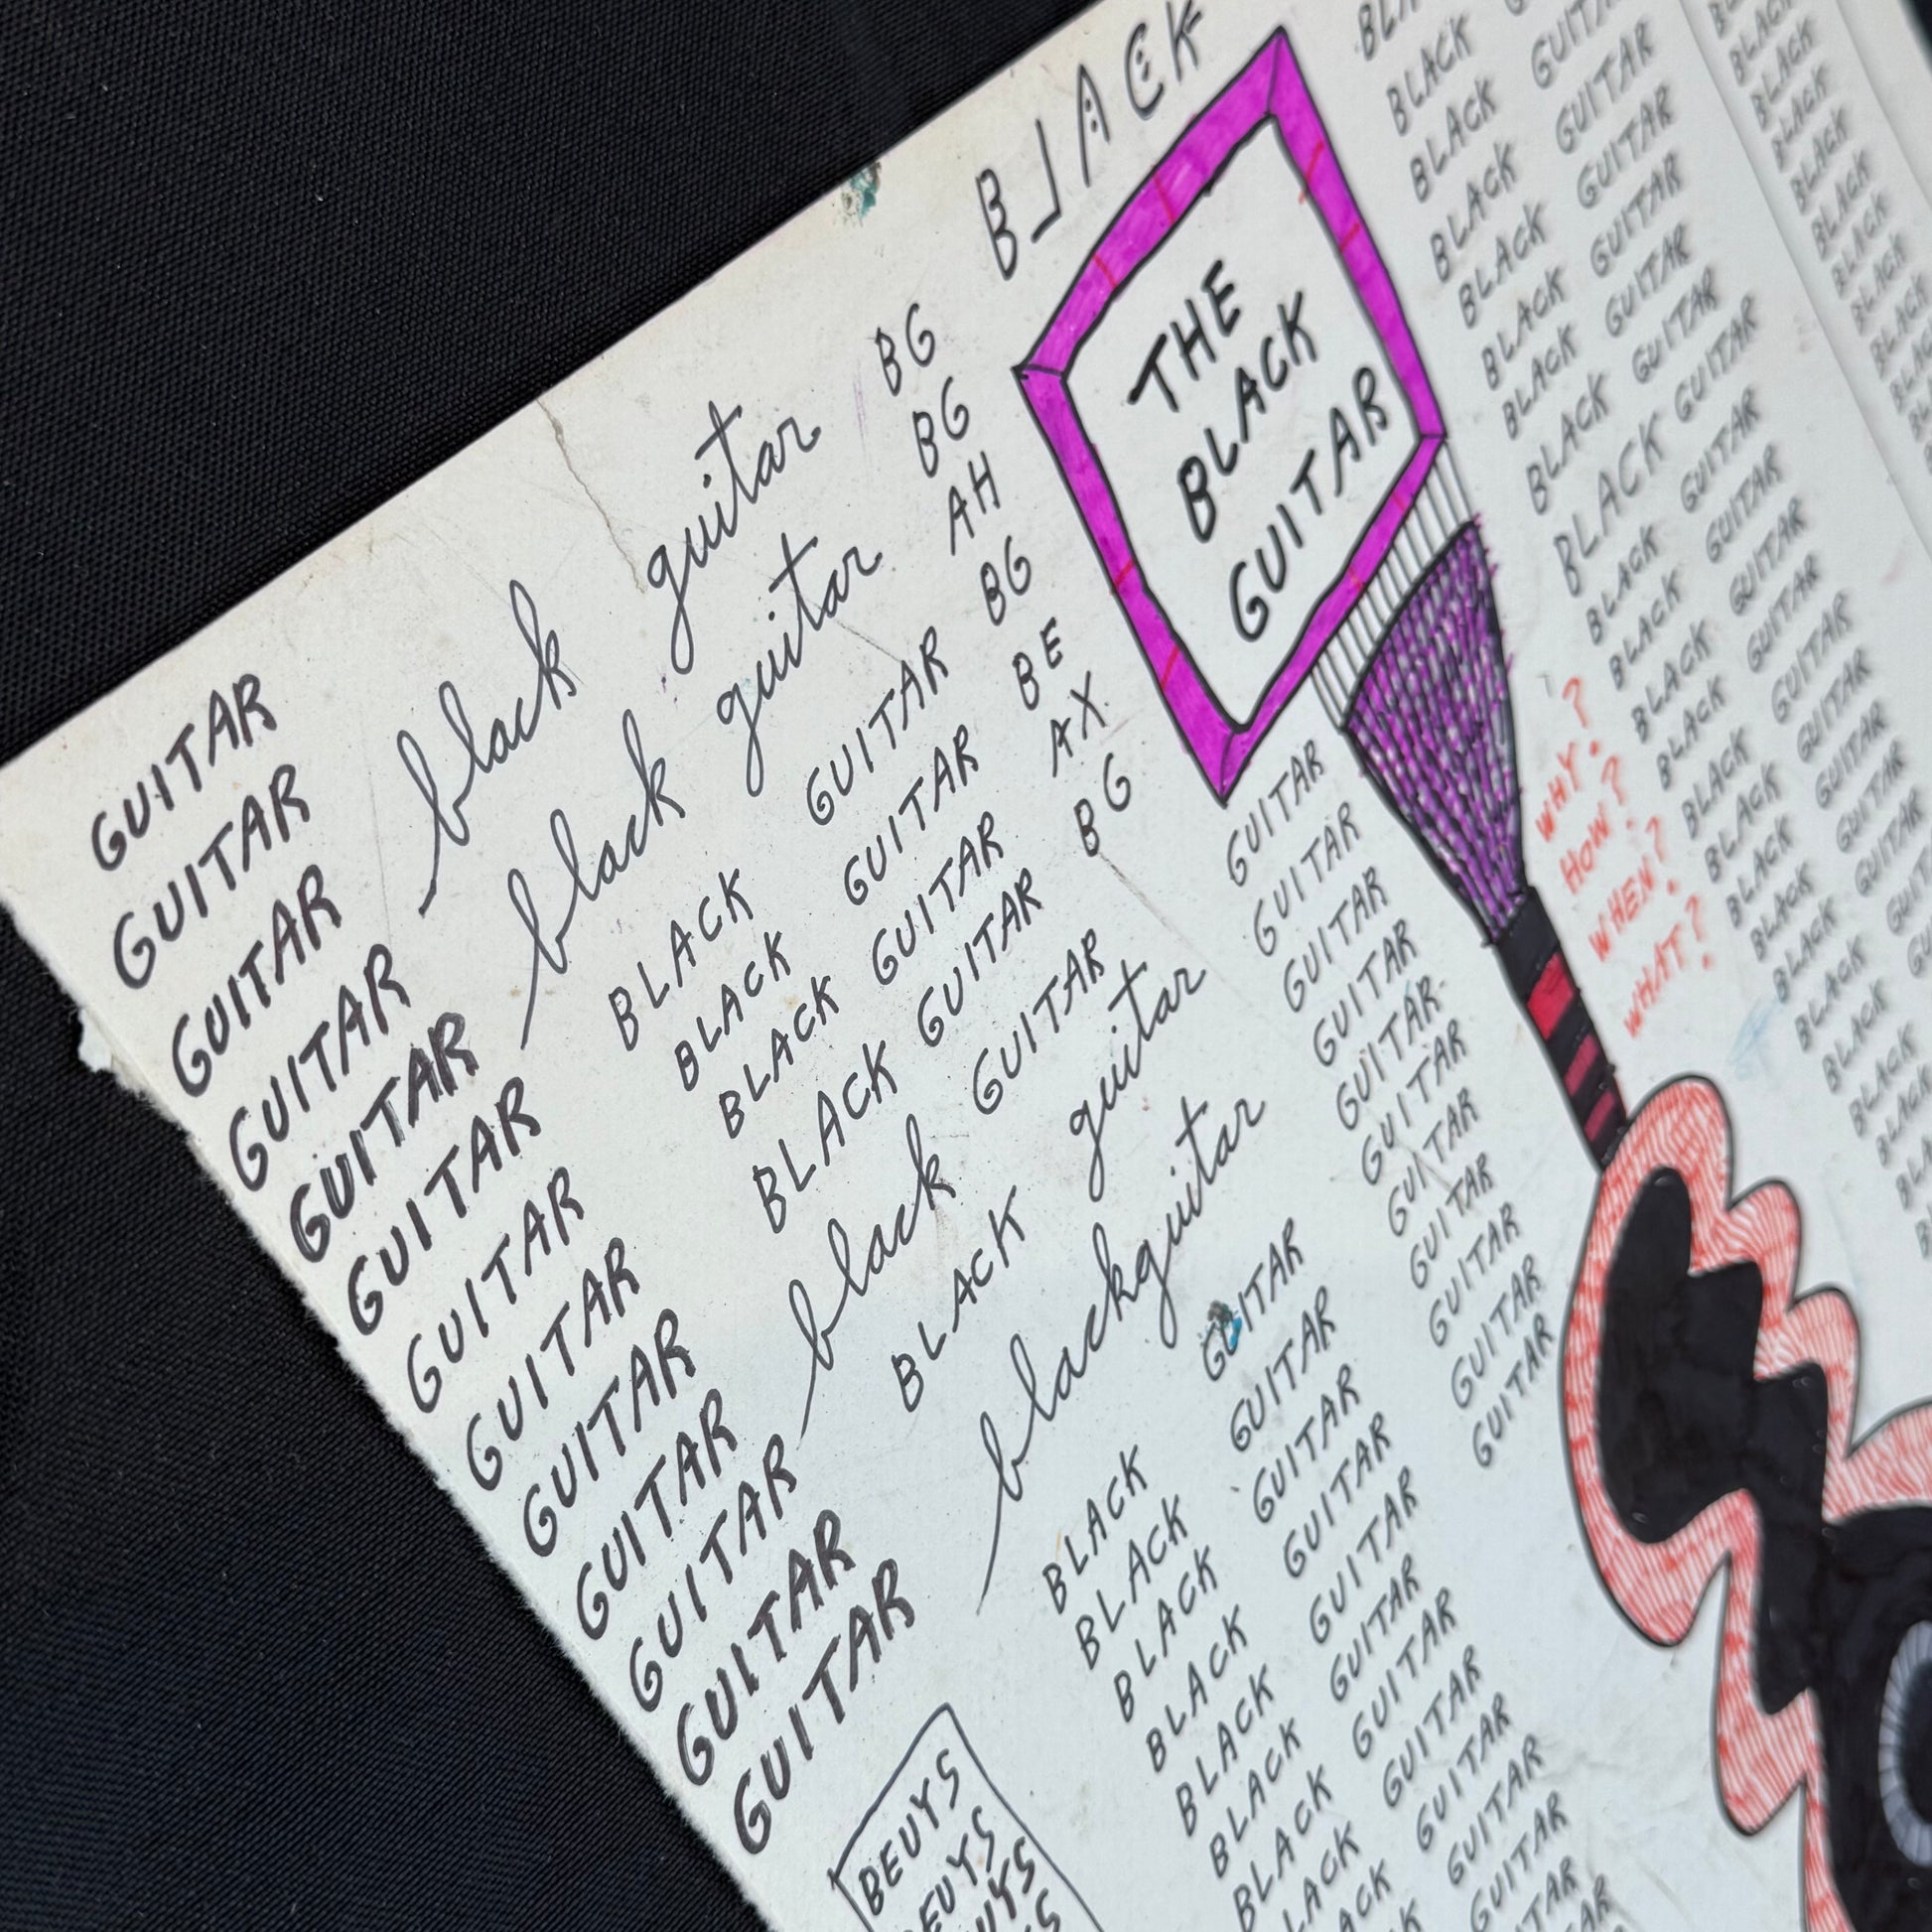 GUITAR
GUITAR
GUITAR
GUITAR
GUITAR
GUITAR
GUITAR
GUITAR
GUITAR
GUITAR
GUITAR
GUITAR
GUITAR
black guitar
black guitar
BLACK GUITAR
BLACK GUITAR
BLACK GUITAR
BLACK GUITAR
GUITAR
black guitar
BLACK
blackguitar
BEUYS
BG
BG
AH
BG
BE
AX
BG
BLACK
THE
BLACK
GUITAR
GUITAR
GUITAR
GUITAR
GUITAR
GUITAR
GUITAR
GUITAR
GUITAR
GUITAR
GUITAR
GUITAR
BLACK GUITAR
BLACK GUITAR
BLACK GUITAR
BLACK GUITAR
BLACK GUITAR
BLACK GUITAR
BLACK GUITAR
GUITAR
GUITAR
GUITAR
WHY?
HOW?
WHEN?
WHAT?
BLACK GUITAR
BLACK GUITAR
BLACK GUITAR
BLACK GUITAR
BLACK GUITAR
BLACK GUITAR
BLACK GUITAR
BLACK GUITAR
BLACK GUITAR
BLACK GUITAR
BLACK GUITAR
BLACK GUITAR
BLACK GUITAR
BLACK GUITAR
BLACK GUITAR
BLACK GUITAR
BLACK GUITAR
BLACK
BLACK
BLACK
BLACK
BLACK
BLACK
BLACK
BLACK
BLACK
BLACK
BLACK
BLACK